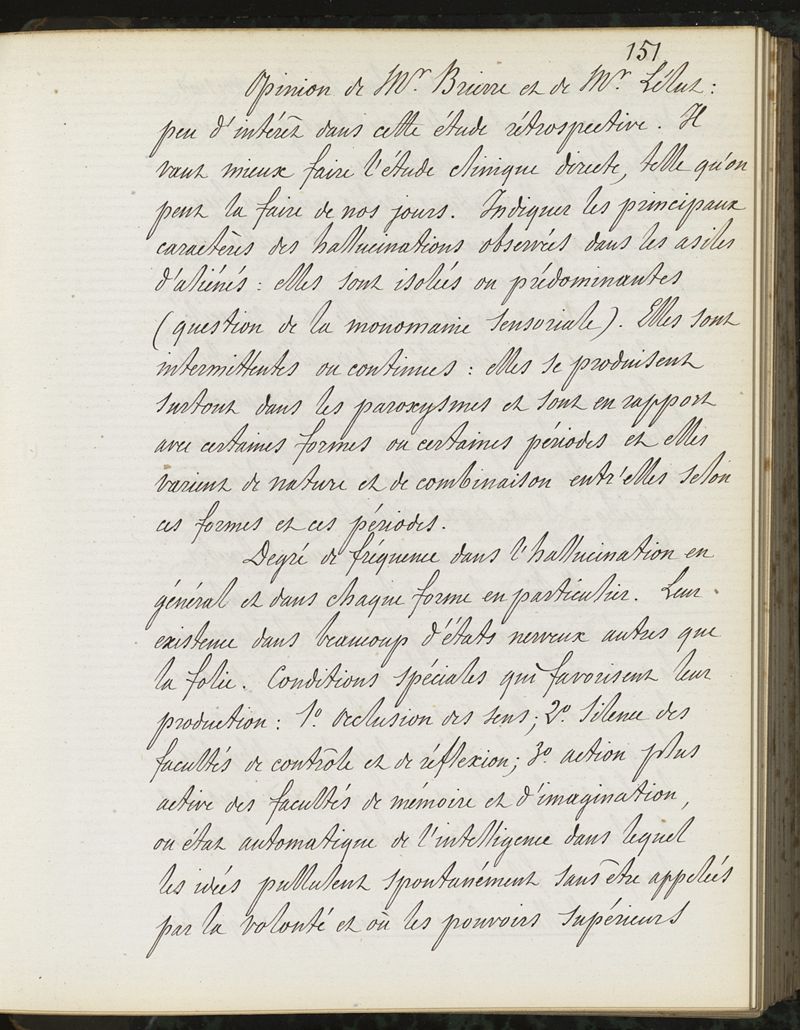 151
Opinion de Mr. Brierre et de Mr. Lélut :
peu d'intérêt dans cette étude rétrospective. Il
vaut mieux faire l'étude clinique directe, telle qu'on
peut la faire de nos jours. Indiquer les principaux
caractères des hallucinations observées dans les asiles
d'aliénés : elles sont isolées ou prédominantes
(question de la monomanie sensoriale). Elles sont
intermittentes ou continues : elles se produisent
surtout dans les paroxysmes et sont en rapport
avec certaines formes ou certaines périodes et elles
varient de nature et de combinaison entr'elles selon
ces formes et ces périodes.
Degré de fréquence dans l'hallucination en
général et dans chaque forme en particulier. Leur
existence dans beaucoup d'états nerveux autres que
la folie. Conditions spéciales qui favorisent leur
production : 1º occlusion des sens ; 2º silence des
facultés de contrôle et de réflexion ; 3º action plus
active des facultés de mémoire et d'imagination,
ou état automatique de l'intelligence dans lequel
les idées pullulent spontanément sans être appelées
par la volonté et où les pouvoirs supérieurs